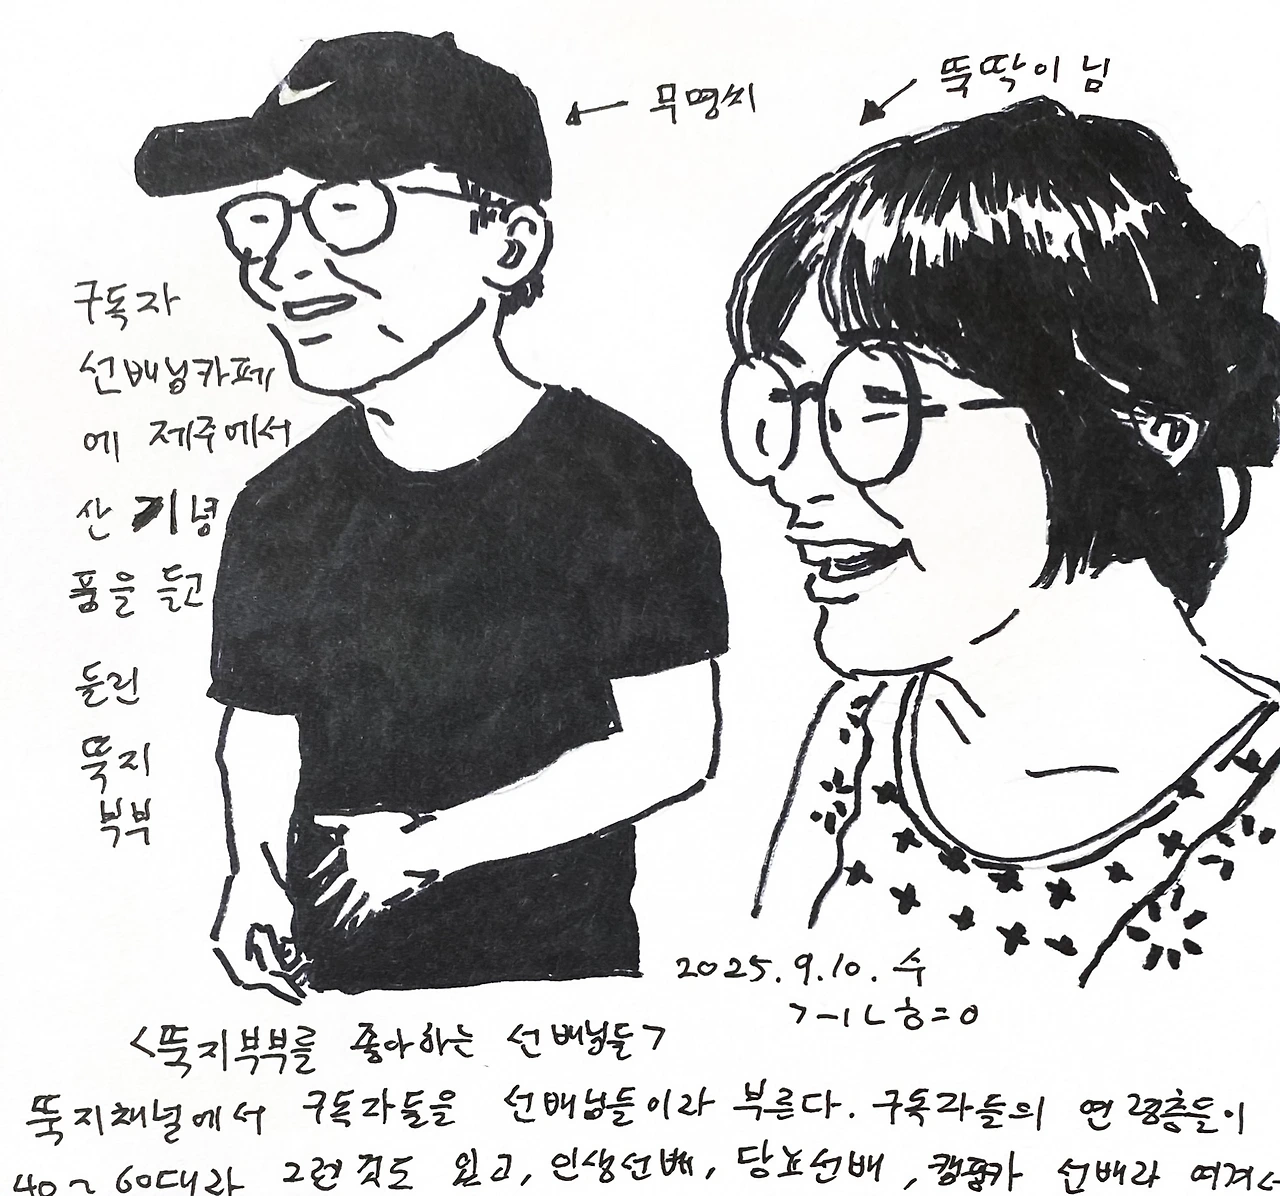 무명씨
뚝딱이 님
구독자
선배님카페
에 제주에서
산 기념
품을 들고
들린
뚝지
부부
2025.9.10. 수
ㄱㅡㅣㄴ ㅎ=ㅇ
<뚝지부부를 좋아하는 선배님들>
뚝지채널에서 구독자들을 선배님들이라 부른다. 구독자들의 연령층들이
40~60대라 그런것도 있고, 인생선배, 당뇨선배, 캠핑카 선배라 여겨서